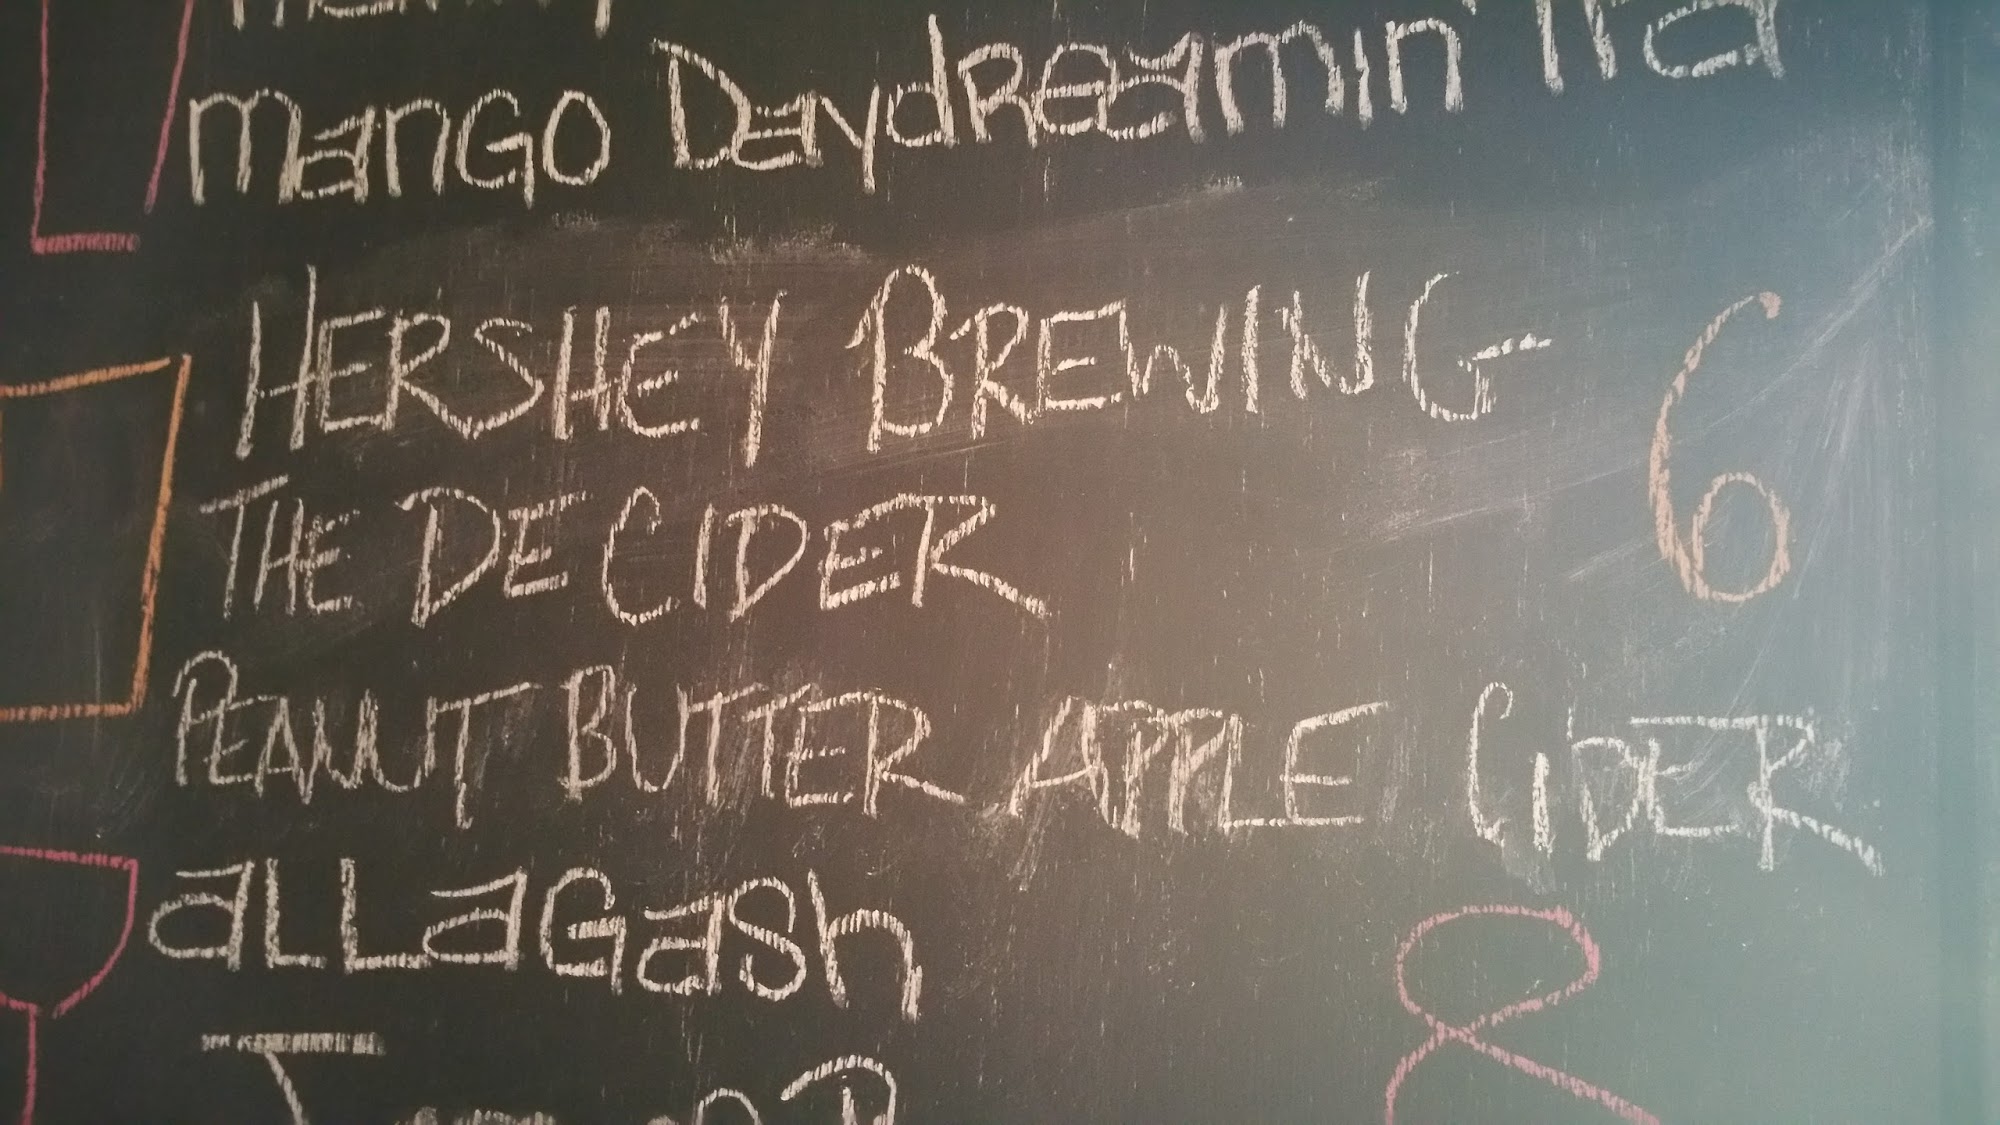 mango Daydreamin' IPA
Hershey Brewing 6
The Decider
Peanut Butter Apple Cider
allagash 8